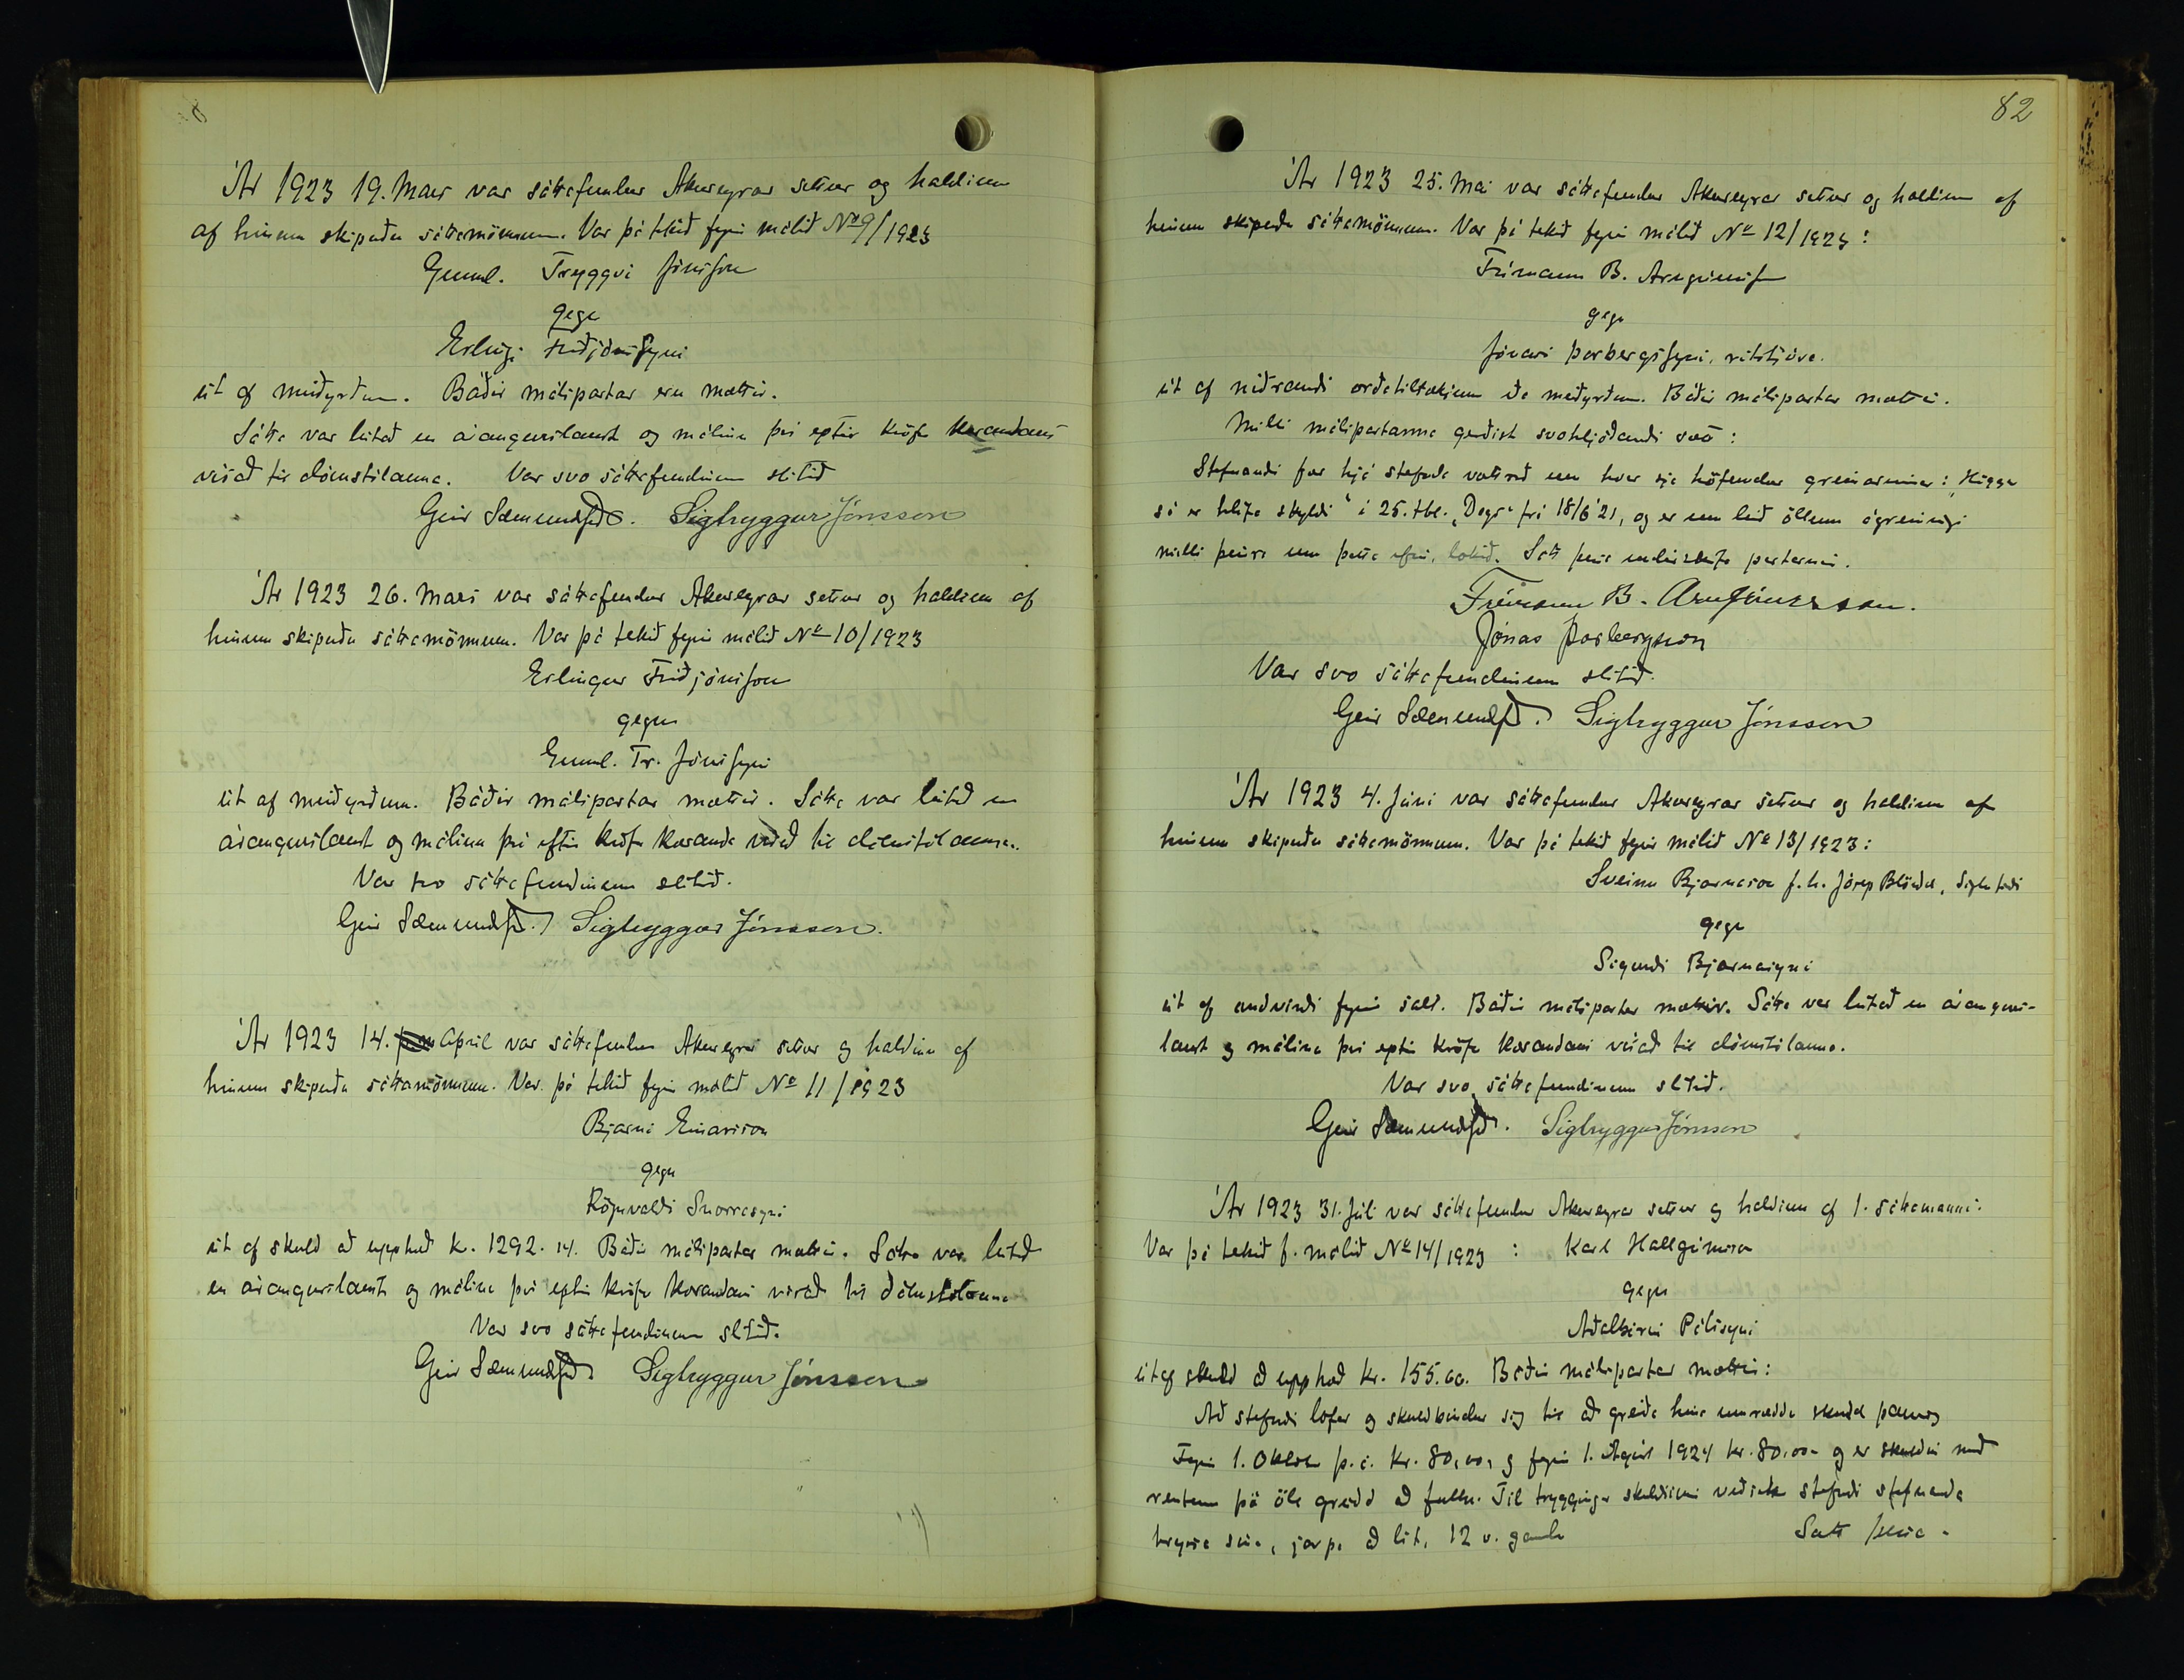 Ár 1923 19. Mars var sáttafundur Akureyrar settur og haldinn
af hinum skipuðu sáttamönnum. Var þá tekið fyrir málið No 9/1923
Gunnl. Tryggvi Jónsson
gegn
Erlingi Friðjónssyni
út af meiðyrðum. Báðir málspartar eru mættir.
Sátta var leitað en árangurslaust og málinu því eptir kröfu kærandans
vísað til dómstólanna. Var svo sáttafundinum slitið
Geir Sæmundsson. Sigtryggur Jónsson
Ár 1923 26. Mars var sáttafundur Akureyrar settur og haldinn af
hinum skipuðu sáttamönnum. Var þá tekið fyrir málið No 10/1923
Erlingur Friðjónsson
gegn
Gunnl. Tr. Jónssyni
út af meiðyrðum. Báðir málspartar mættir. Sátta var leitað en
árangurslaust og málinu því eftir kröfu kæranda vísað til dómstólanna.
Var svo sáttafundinum slitið.
Geir Sæmundsson. Sigtryggur Jónsson.
Ár 1923 14. Apríl var sáttafundur Akureyrar settur og haldinn af
hinum skipuðu sáttamönnum. Var þá tekið fyrir málið No 11/1923
Bjarni Einarsson
gegn
Rögnvaldi Snorrasyni
út af skuld að upphæð k. 1292.14. Báðir málspartar mættir. Sátta var leitað
en árangurslaust og málinu því eptir kröfu kærandans vísað til dómstólanna
Var svo sáttafundinum slitið.
Geir Sæmundsson Sigtryggur Jónsson
82
Ár 1923 25. Maí var sáttafundur Akureyrar settur og haldinn af
hinum skipuðu sáttamönnum. Var þá tekið fyrir málið No 12/1923:
Frímann B. Arngrímsson
gegn
Jónasi Þorbergssyni, ritstjóra.
út af niðrandi orðatiltækjum eða meiðyrðum. Báðir málspartar mættir.
Milli málspartanna gerðist svohljóðandi sætt:
Stefnandi fær hjá stefnda vottorð um hver sje höfundur greinarinnar: „Höggur
sá er hlífa skyldi“ í 25. tbl. „Dags“ frá 18/6 '21, og er um leið öllum ágreiningi
milli þeirra um þetta efni, lokið. Sátt þessa undirskrifa partarnir.
Frímann B. Arngrímsson.
Jónas Þorbergsson
Var svo sáttafundinum slitið.
Geir Sæmundsson. Sigtryggur Jónsson
Ár 1923 4. Júní var sáttafundur Akureyrar settur og haldinn af
hinum skipuðu sáttamönnum. Var þá tekið fyrir málið No 13/1923:
Sveinn Bjarnason f.h. Jósep Blöndal, Siglufirði
gegn
Sigurði Bjarnasyni
út af andvirði fyrir salt. Báðir málspartar mættir. Sátta var leitað en árangurs-
laust og málinu því eptir kröfu kærandans vísað til dómstólanna.
Var svo sáttafundinum slitið.
Geir Sæmundsson. Sigtryggur Jónsson
Ár 1923 31. Júlí var sáttafundur Akureyrar settur og haldinn af 1. sáttamanni.
Var þá tekið f. málið No 14/1923: Karl Hallgrímsson
gegn
Aðalsteini Pálssyni
út af skuld að upphæð kr. 155.60. Báðir málspartar mættir:
Að stefndi lofar og skuldbindur sig til að greiða hina umræddu skuld þannig
Fyrir 1. Október þ.á. kr. 80,00, og fyrir 1. Ágúst 1924 kr. 80.00 og er skuldin með
rentum þá öll greidd að fullu. Til tryggingar skuldinni veðsetur stefndi stefnanda
hryssu sína, jarpa að lit, 12 v. gamla Sátt þessa